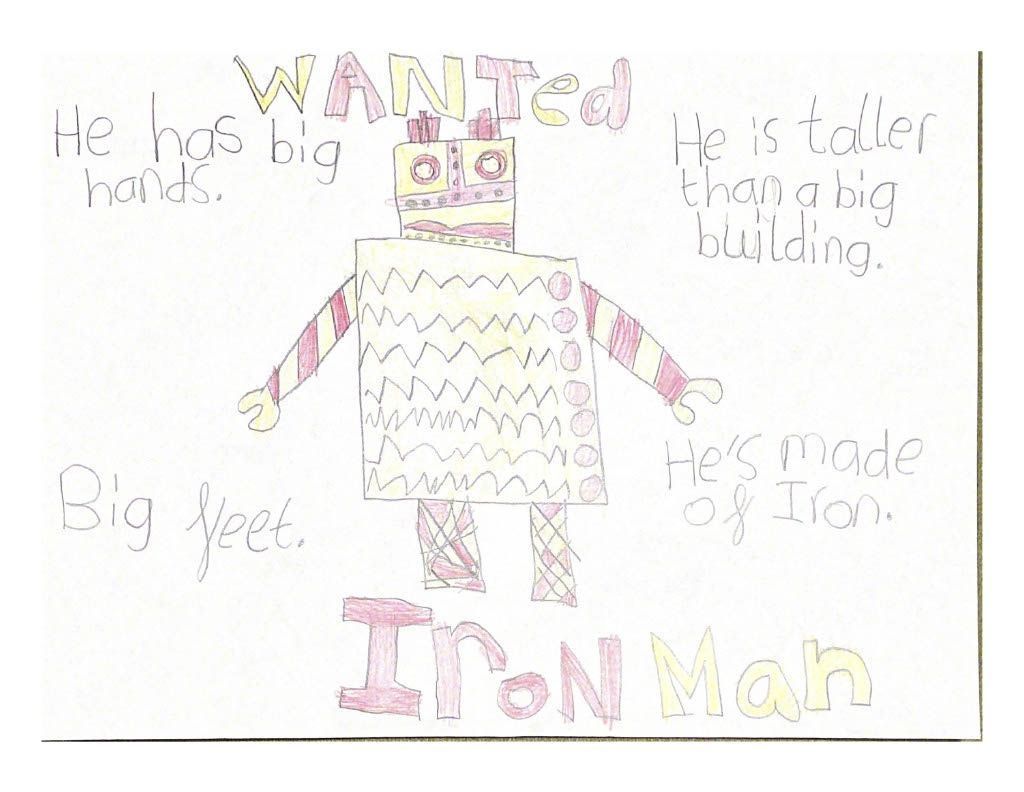 WANTed
He has big
hands.
He is taller
than a big
building.
Big feet.
He's made
of Iron.
IroN Man